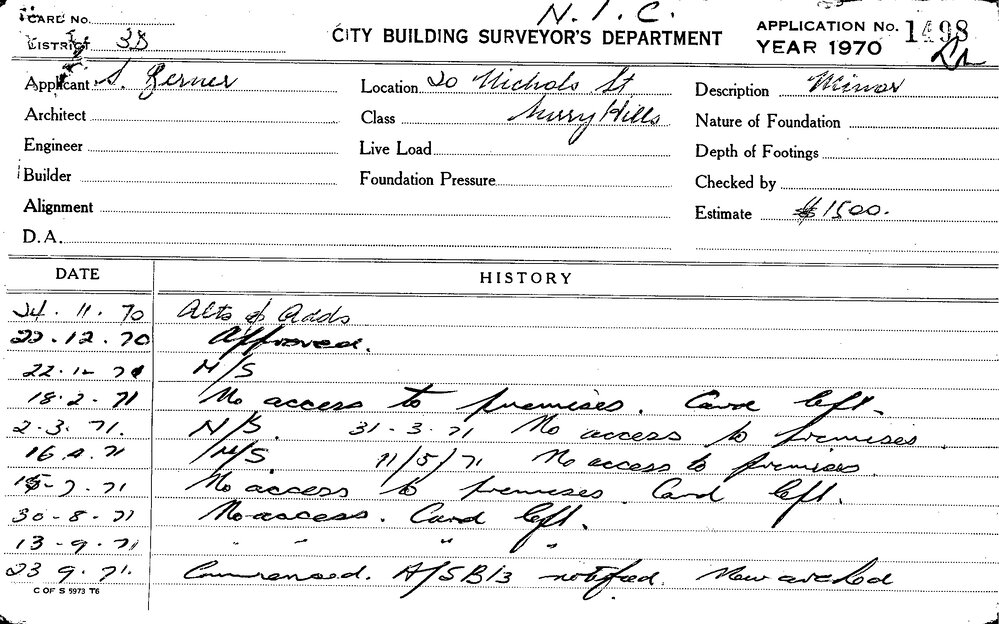 N.I.C.
CARD No.
CITY BUILDING SURVEYOR'S DEPARTMENT
APPLICATION No. 1498
DISTRICT 3B
YEAR 1970
Applicant S. Gerner Location 20 Nichols St Description Minor
Architect Class Surry Hills Nature of Foundation
Engineer Live Load Depth of Footings
Builder Foundation Pressure Checked by
Alignment Estimate $1500.
D.A.
DATE HISTORY
24. 11. 70 Alts & Adds
22.12.70 Approved.
22.12.70 N/S
18.2.71 No access to premises. Card left.
2.3.71. N/S. 31-3-71 No access to premises.
16.4.71 N/S. 11/5/71 No access to premises.
15-7-71 No access to premises. Card left.
30-8-71 No access. Card left.
13-9-71 " " " "
23 9.71. Commenced. A/SB13 notified. New
C OF S 5973 T6